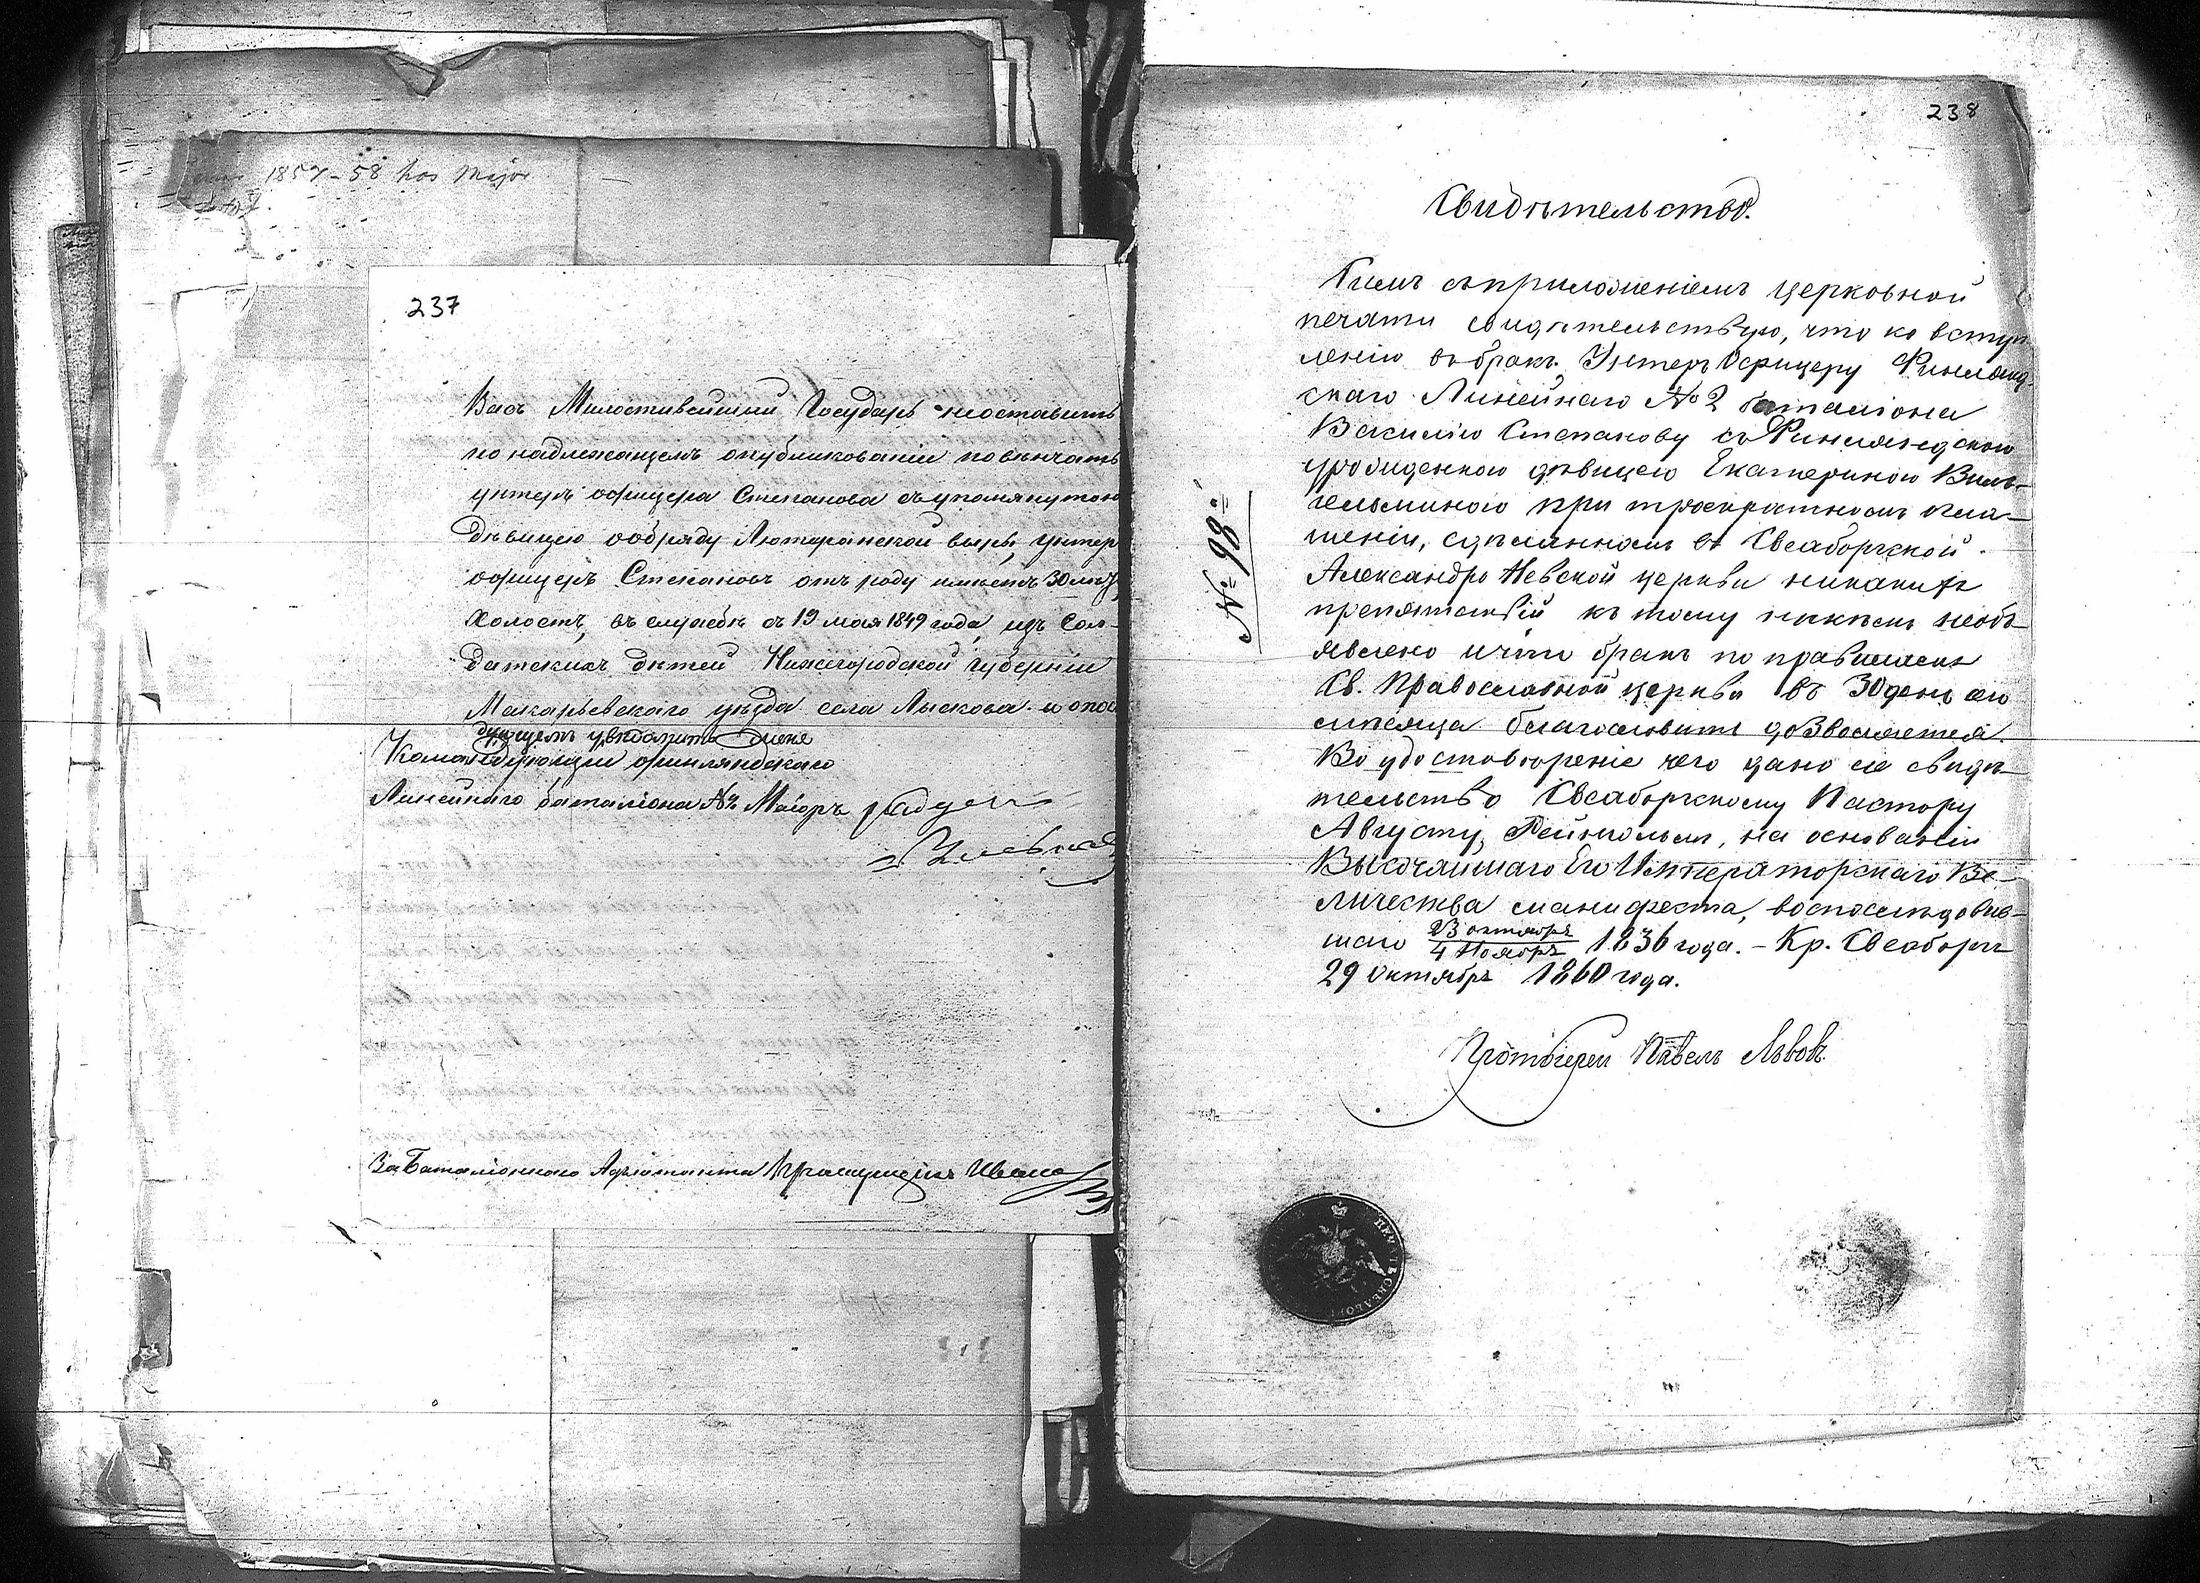 1857-58 hos Major
237
Васъ Милостивейшій Государь неоставить
по надлежащемъ опубликованіи повѣнчать
унтеръ офицера Степанова съ упомянутою
дѣвицею по обряду Лютеранской вѣры, унтеръ
офицеръ Степановъ отъ роду имѣетъ 30 лѣтъ
холостъ, въ службѣ съ 19 мая 1849 года, изъ Сол-
датскихъ дѣтей Нижегородской губерніи
Макарьевскаго уѣзда села Лыскова. и опос
дующемъ увѣдомить меня
Командующій финляндскаго
Линейнаго баталіона №2 Маіоръ
За Баталіоннаго Адъютанта Прапорщикъ Ивано
238
Свидѣтельство.
№ 98
Симъ съ приложеніемъ церковной
печати свидѣтельствую, что ко вступ
ленію въ бракъ, Унтеръ Офицеру Финлянд-
скаго Линейнаго №2 баталіона
Василію Степанову съ Финляндскою
уроженкою дѣвицею Екатериною Виль-
гельминою при троекратномъ огла-
шеніи, сдѣланномъ въ Свеаборгской
Александро Невской церкви никакихъ
препятствій къ тому никѣмъ необъ
явлено и что бракъ по правиламъ
Св. Православной церкви въ 30 день сего
мѣсяца благословить дозволяется.
Во удостовѣреніе чего дано сіе свидѣ-
тельство Свеаборгскому Пастору
Августу Рейнгольму, на основаніи
Высочайшаго Его Императорскаго Ве-
личества манифеста, воспослѣдовав-
шаго 23 октября / 4 Ноября 1836 года. - Кр. Свеаборгъ
29 Октября 1860 года.
Протоіерей Павелъ Львовъ